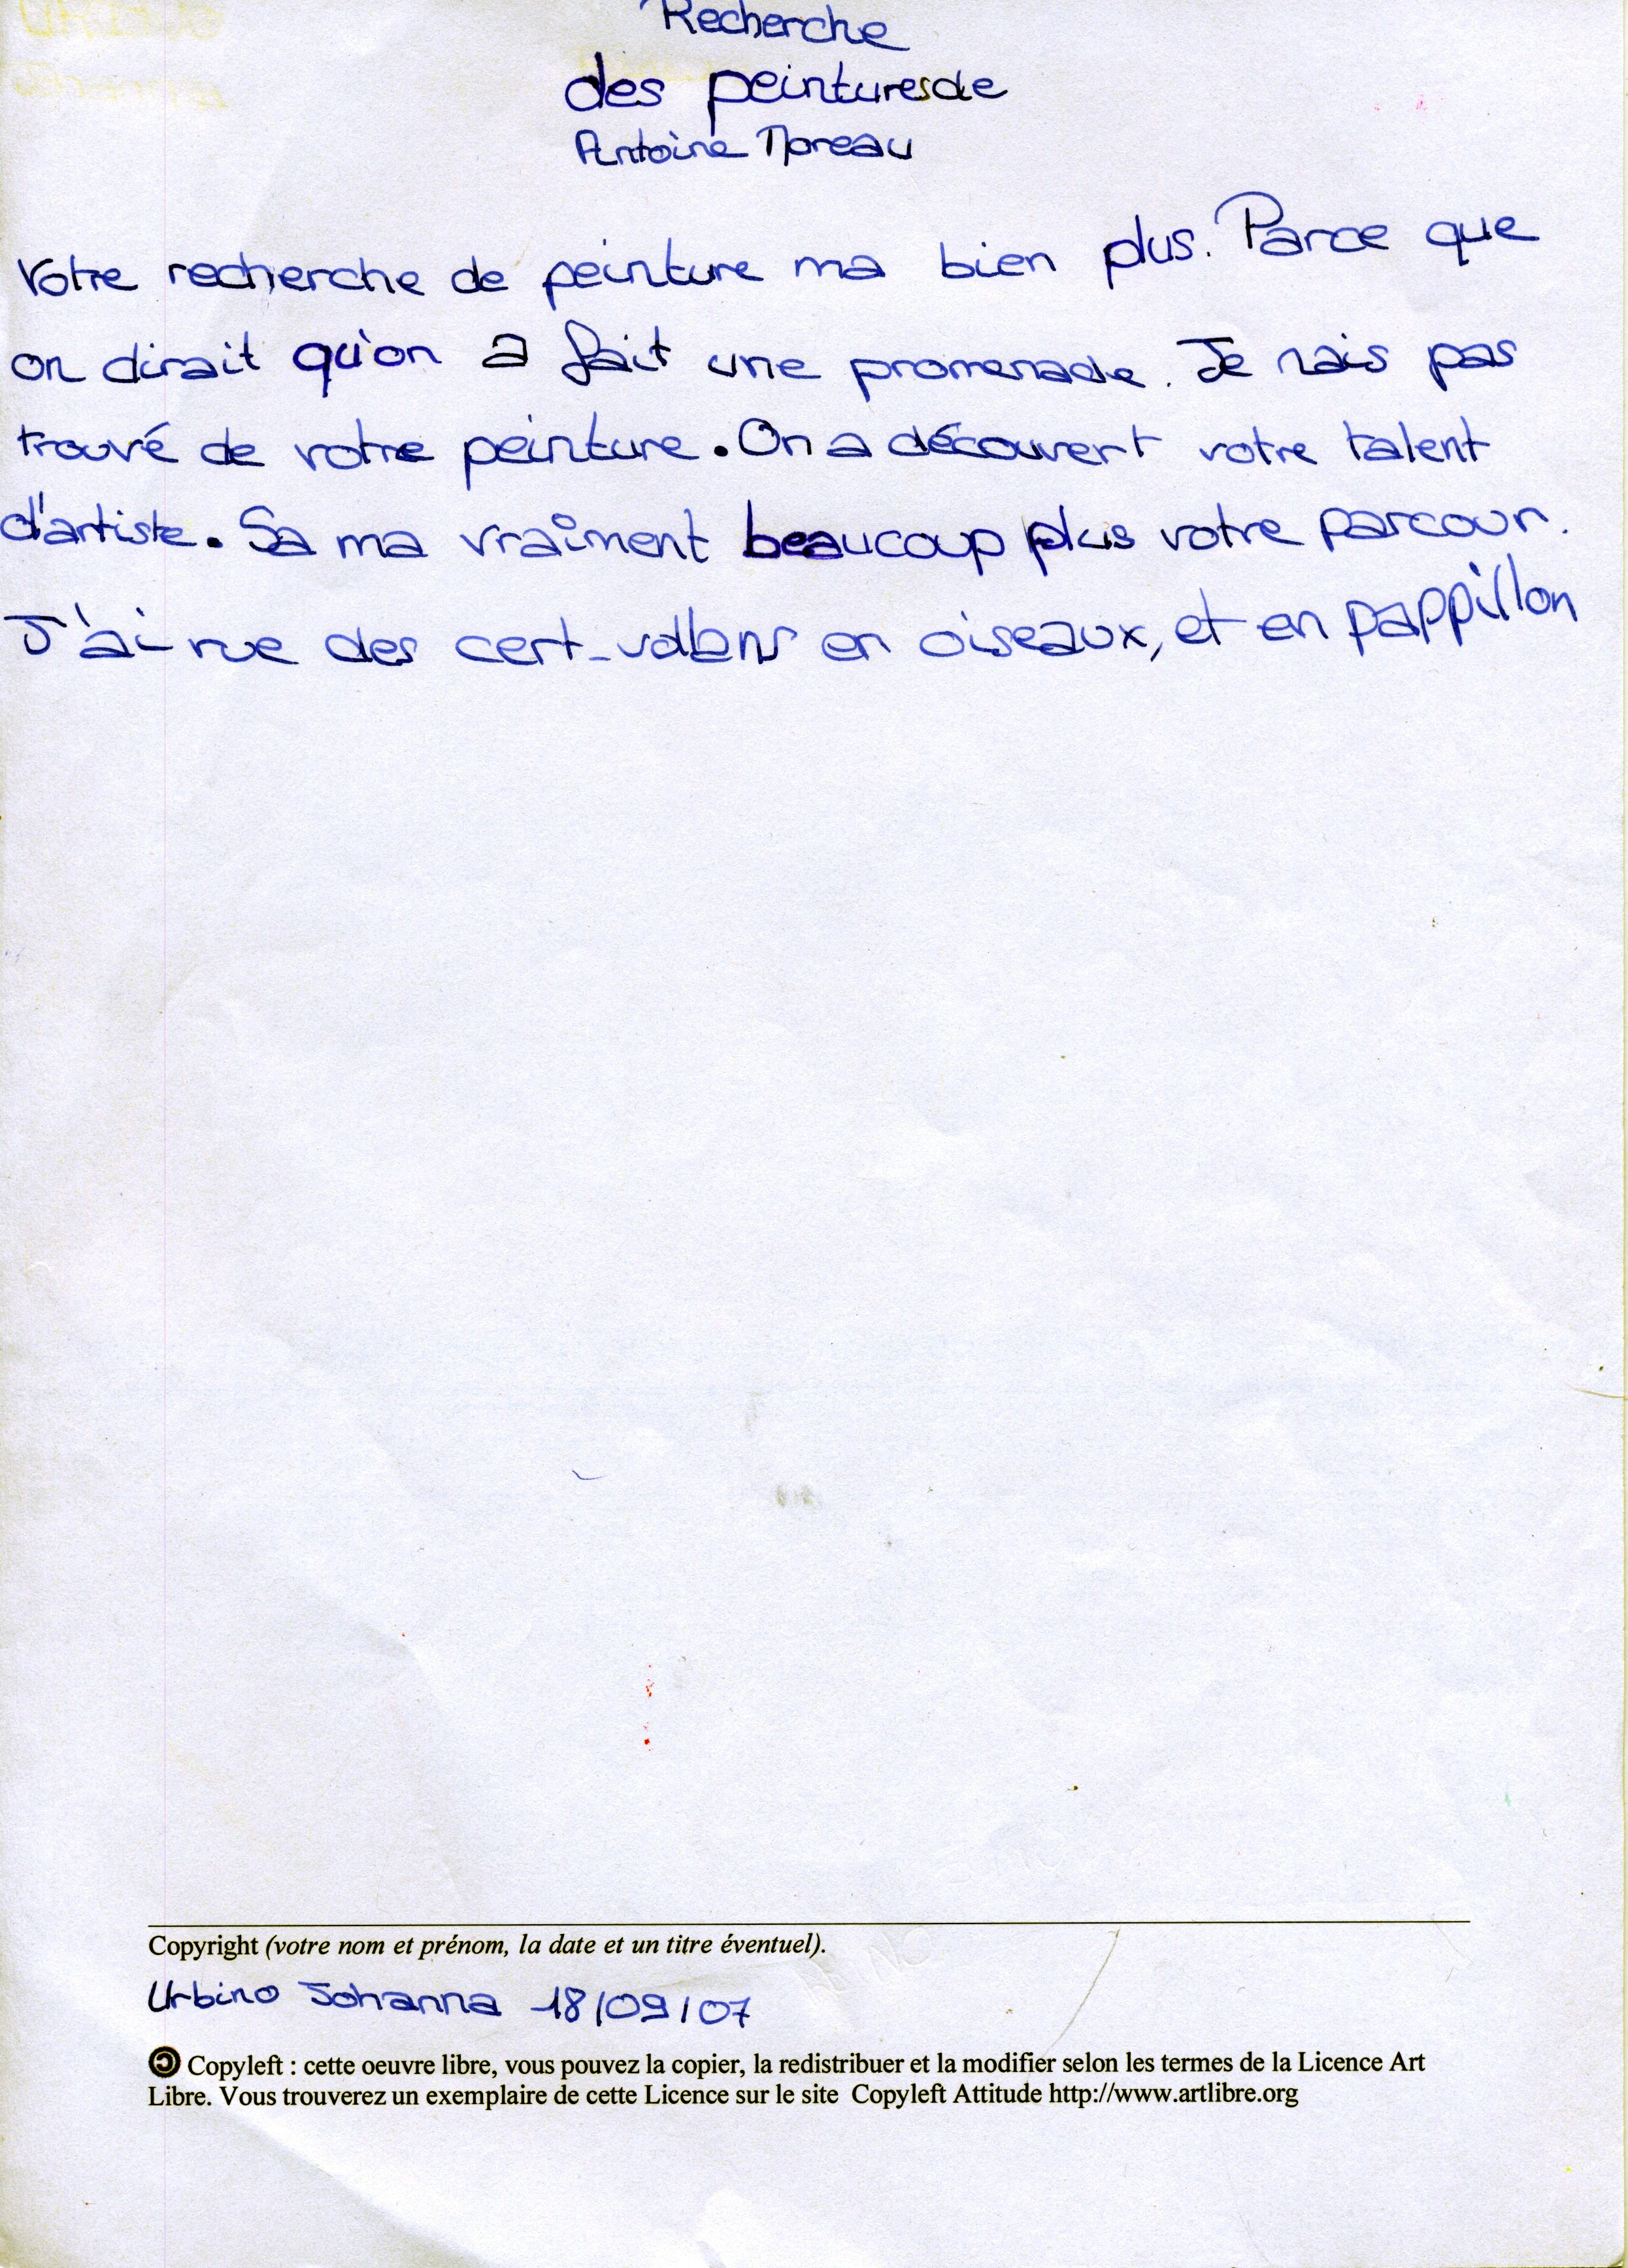 Recherche
des peinturesde
Antoine Moreau
Votre recherche de peinture ma bien plus. Parce que
on dirait qu'on a fait une promenade. Je nais pas
trouvé de votre peinture. On a découvert votre talent
d'artiste. Sa ma vraiment beaucoup plus votre parcour.
J'ai vue des cert-vollans en oiseaux, et en pappillon
Copyright (votre nom et prénom, la date et un titre éventuel).
Urbino Johanna 18/09/07
Copyleft : cette oeuvre libre, vous pouvez la copier, la redistribuer et la modifier selon les termes de la Licence Art
Libre. Vous trouverez un exemplaire de cette Licence sur le site Copyleft Attitude http://www.artlibre.org